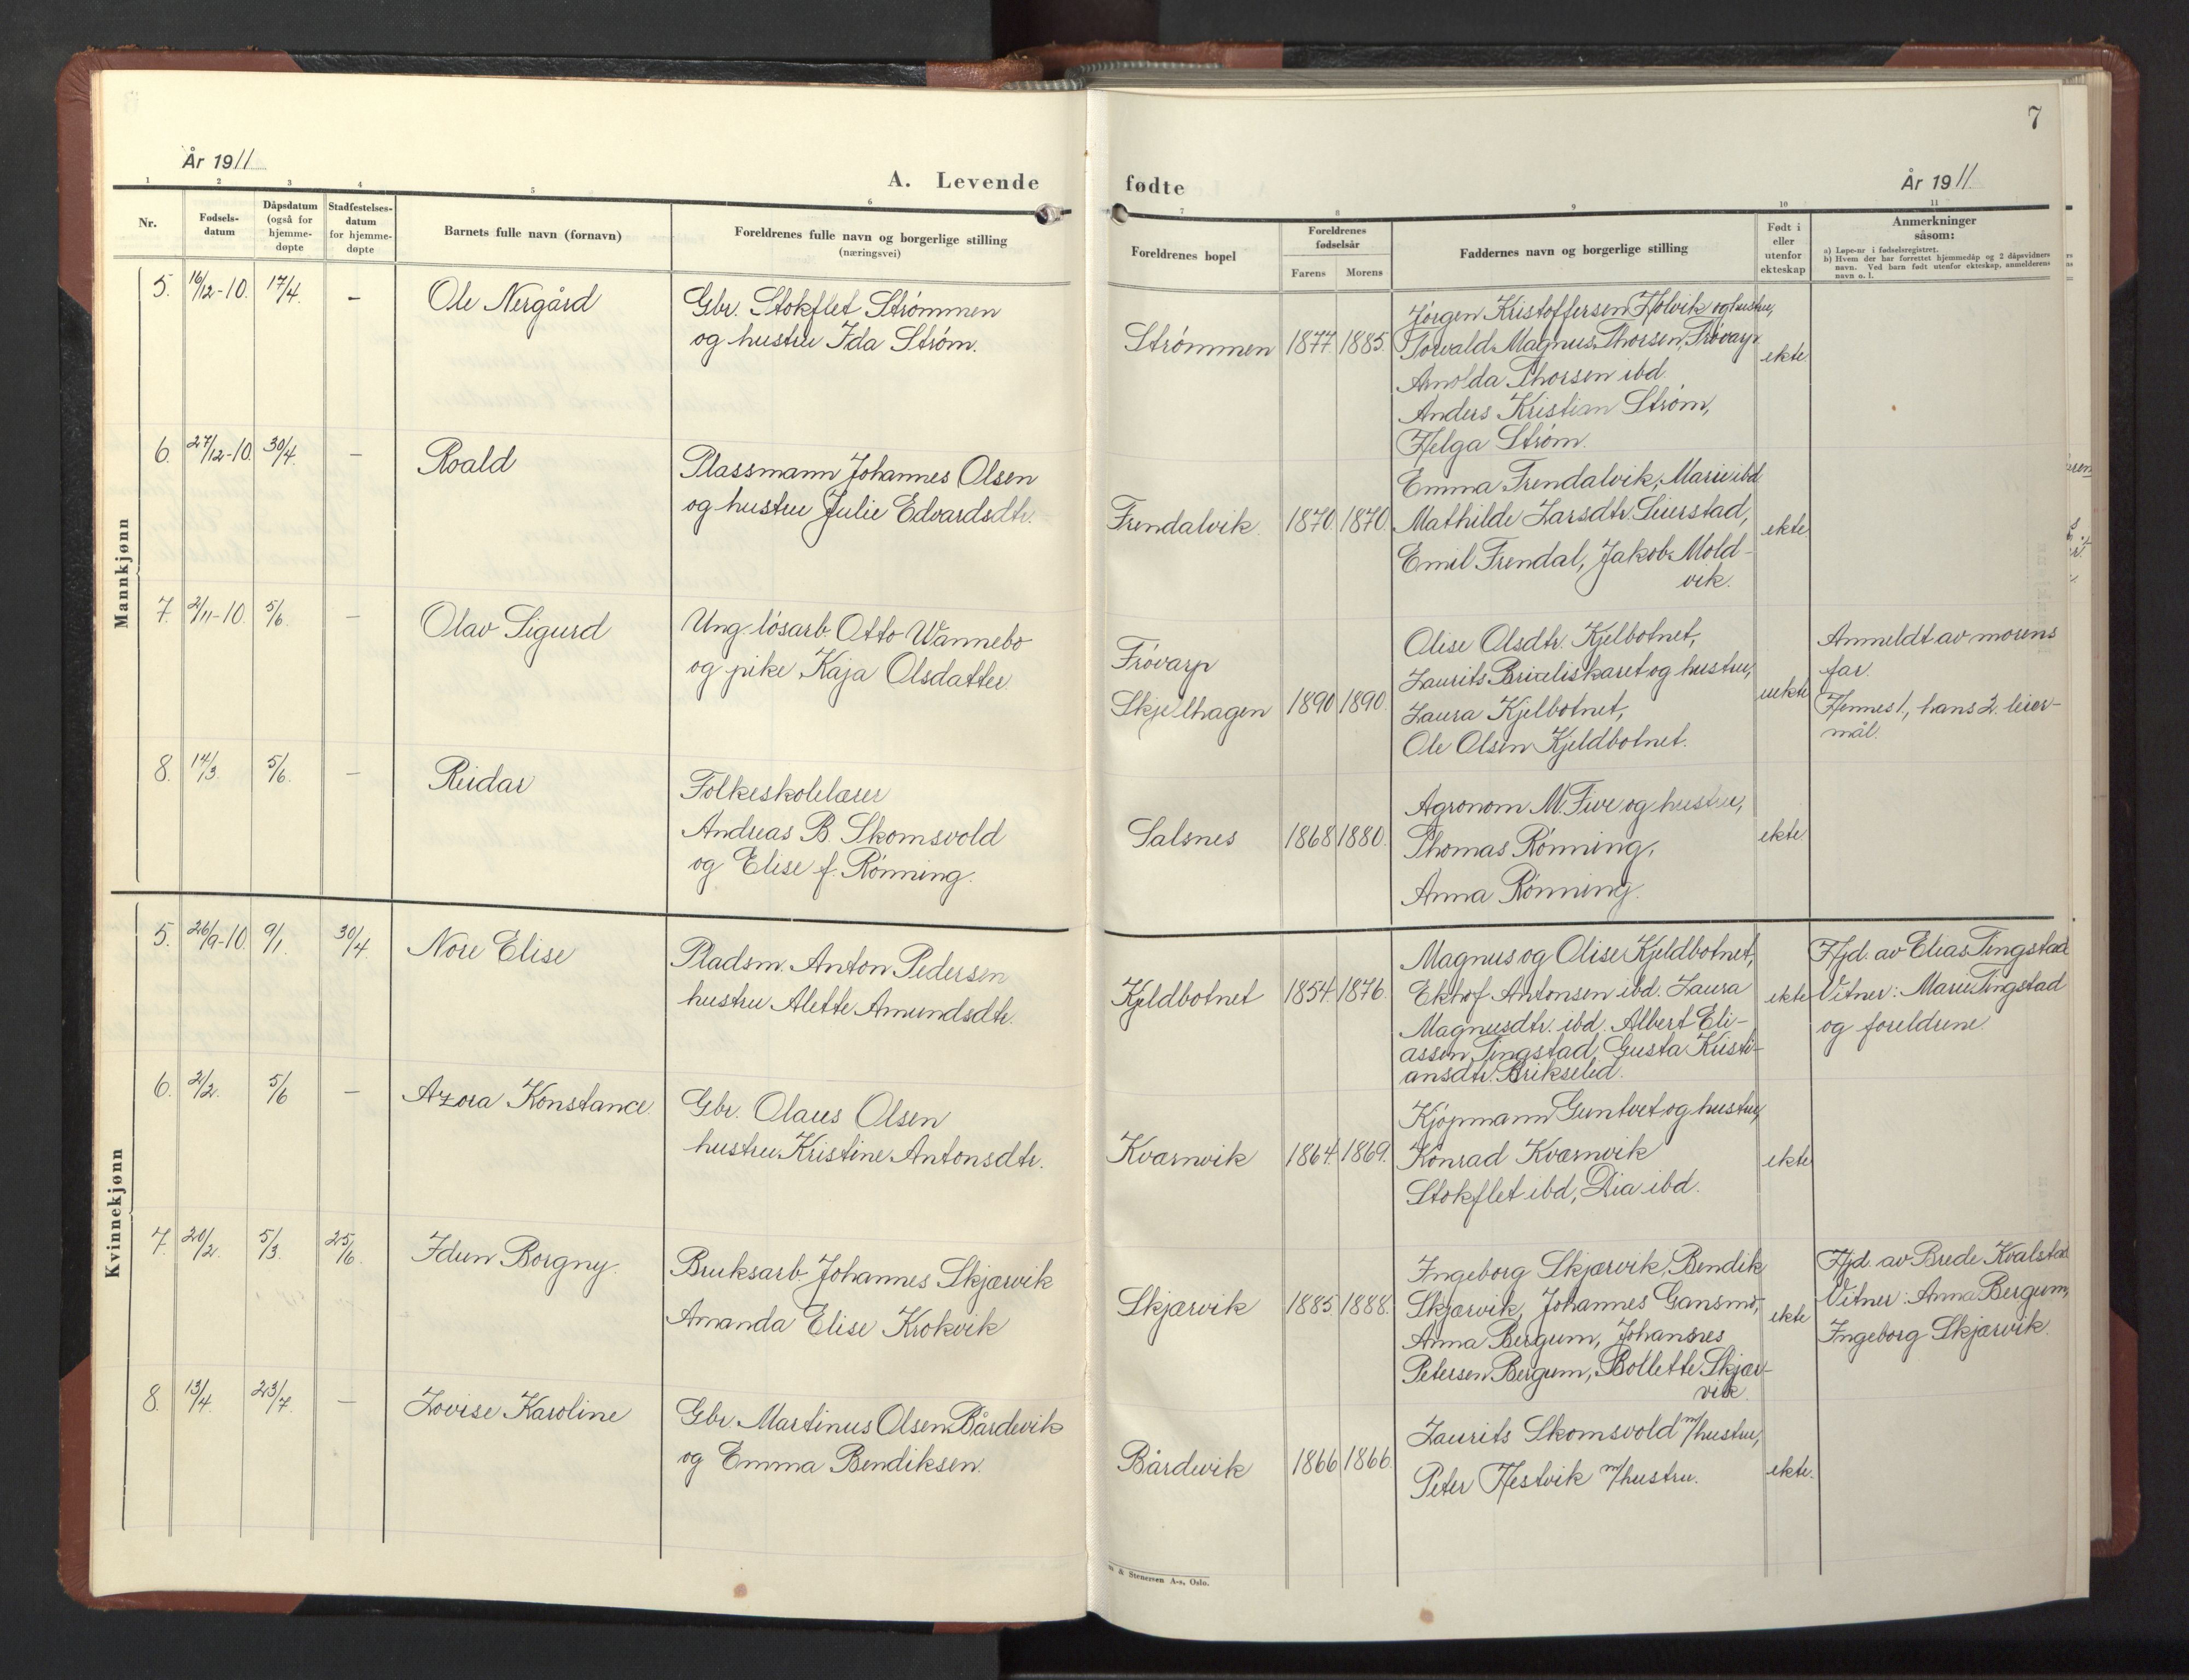 År 1911
A. Levende
1 2 3 4 5 6
Nr.
Fødsels-
datum
Dåpsdatum
(også for
hjemme-
døpte
Stadfestelses-
datum
for hjemme-
døpte
Barnets fulle navn (fornavn)
Foreldrenes fulle navn og borgerlige stilling
(næringsvei)
Mannkjønn
5. 16/12-10. 17/4. – Ole Nergård Gbr. Stokflet Strømmen
og hustru Ida Strøm.
6. 27/12-10. 30/4. – Roald Plassmann Johannes Olsen
og hustru Julie Edvardsdtr.
7. 2/11-10. 5/6. – Olav Sigurd Ung. løsarb. Otto Wannebo
og pike Kaja Olsdatter.
8. 14/3. 5/6. – Reidar Folkeskolelærer
Andreas B. Skomsvold
og Elise f. Rønning.
Kvinnekjønn
5. 26/9-10. 9/1. 30/4. Nore Elise Pladsm. Anton Pedersen
hustru Alette Amundsdtr.
6. 2/2. 5/6 – Azora Konstance. Gbr. Olaus Olsen
hustru Kristine Antonsdtr.
7. 20/2. 5/3. 25/6. Idun Borgny. Bruksarb. Johannes Skjærvik
Amanda Elise Krokvik
8. 13/4. 23/7. – Lovise Karoline Gbr. Martinus Olsen Bårdevik
og Emma Bendiksen.
7
fødte
År 1911
7 8 9 10 11
Foreldrenes bopel
Foreldrenes
fødselsår
Farens Morens
Faddernes navn og borgerlige stilling
Født i
eller
utenfor
ekteskap
Anmerkninger
såsom:
a) Løpe-nr i fødselsregistret.
b) Hvem der har forrettet hjemmedåp og 2 dåpsvidners
navn. Ved barn født utenfor ekteskap, anmelderens
navn o. l.
Strømmen 1877. 1885. ekte
Jørgen Kristoffersen Holvik og hustru,
Torvald Magnus Thorsen, Frøvarp
Arnolda Thorsen ibd.
Anders Kristian Strøm,
Helga Strøm.
Frendalvik. 1870. 1870. ekte
Emma Frendalvik, Marie ibd.
Mathilde Larsdtr. Seierstad,
Emil Frendal, Jakob Mold-
vik.
Frøvarp
Skjelhagen 1890 1890. uekte
Olise Olsdtr. Kjelbotnet,
Laurits og hustru,
Laura Kjelbotnet,
Ole Olsen Kjeldbotnet.
Anmeldt av morens
far.
Hennes 1., hans 2. leier-
mål.
Salsnes 1868 1880. ekte
Agronom M. Five og hustru,
Thomas Rønning,
Anna Rønning.
Kjeldbotnet 1854. 1876. ekte
Magnus og Olise Kjeldbotnet,
Ekhof Antonsen ibd. Laura
Magnusdtr. ibd. Albert Eli-
assen Tingstad, Gusta Kristi-
ansdtr.
Hjd. av Elias Tingstad
Vitner: Marie Tingstad
og foreldrene.
Kvarnvik 1864. 1869. ekte
Kjøpmann Guntvet og hustru,
Konrad Kvarnvik
Stokflet ibd, Dia ibd.
Skjærvik 1885. 1888. ekte
Ingeborg Skjærvik, Bendik
Skjærvik, Johannes Gansmo,
Anna Bergum, Johannes
Petersen Bergum, Bollette Skjær-
vik.
Hjd. av Brede Kvalstad
Vitner: Anna Bergum,
Ingeborg Skjærvik.
Bårdevik 1866 1866. ekte.
Laurits Skomsvold m/hustru,
Peter Hestvik m/hustru.
& Stenersen A-s, Oslo.